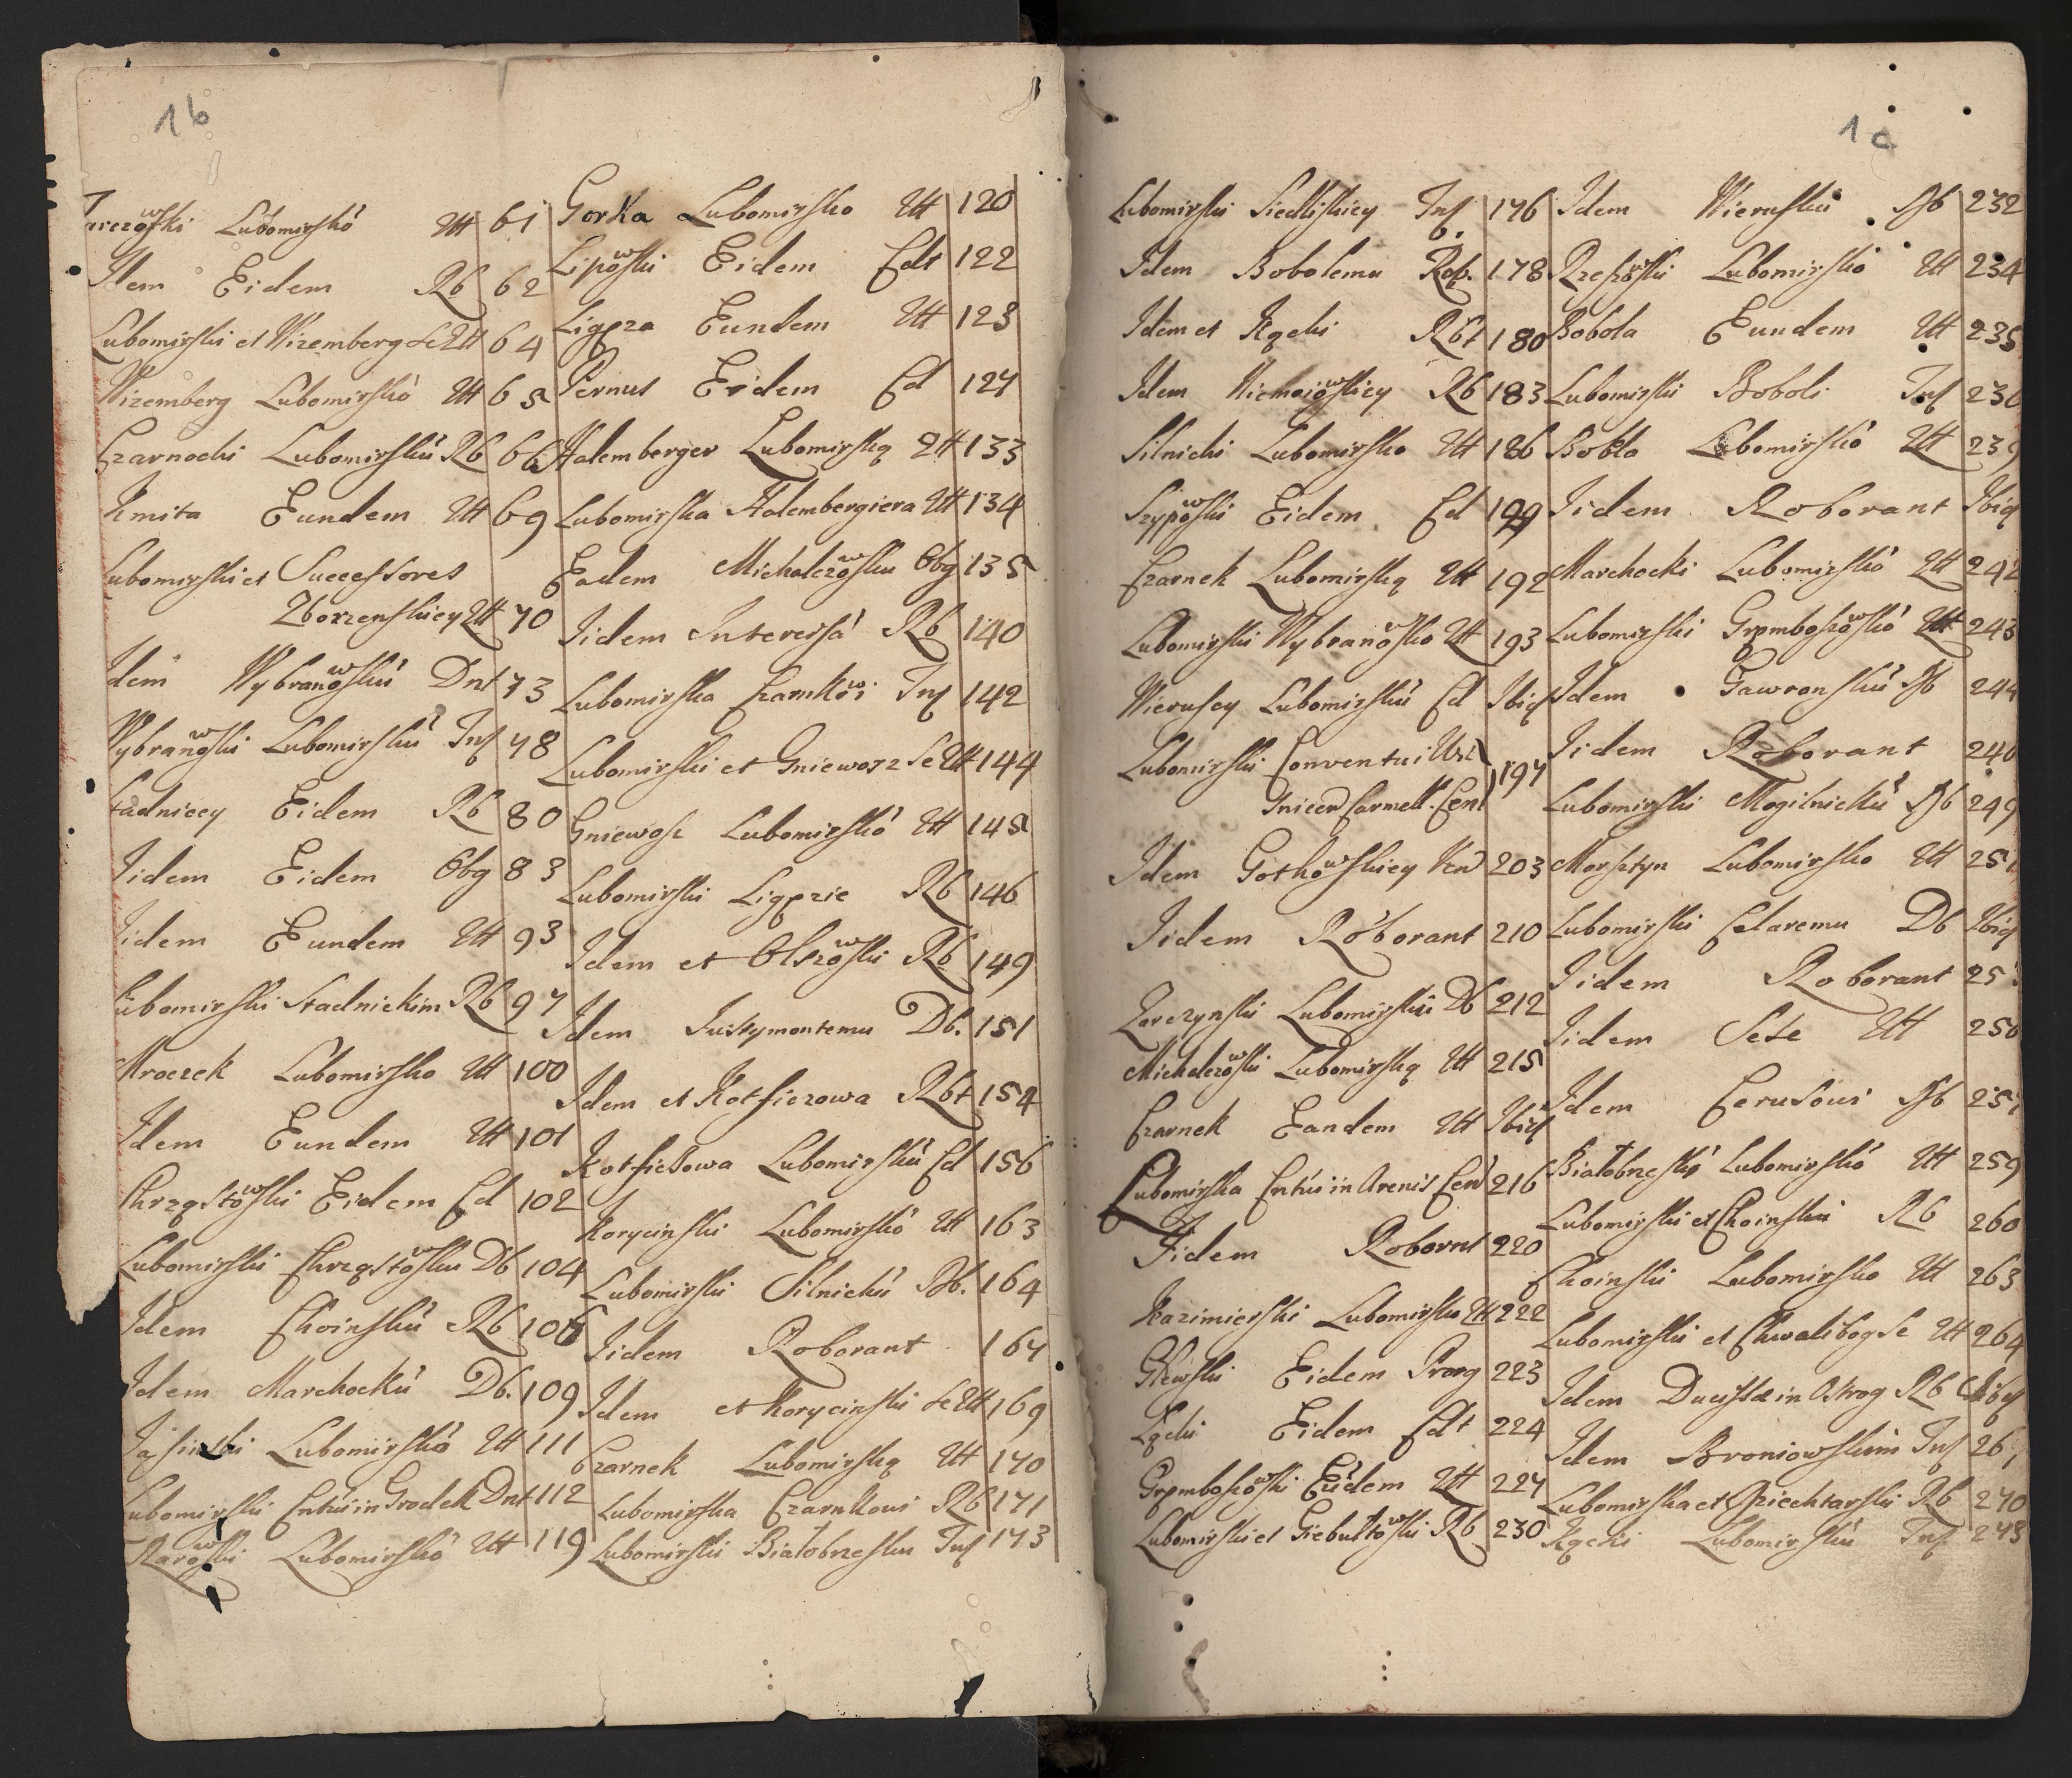 1b
Lubomirskó Utt 61
Idem Eidem Rb 62
Lubomirski et Wizemberg Se Utt 64
Wizemberg Lubomirskó Utt 65
Czarnocki Lubomirskú Rb 66
Kmita Eundem Utt 69
Lubomirski et Successores
Zborzenskiey Utt 70
Idem Wybranowskú Dnt 73
Wybranowski Lubomirskú Ins 78
Stadniccy Eidem Rb 80
Iidem Eidem Obg 83
Iidem Eundem Utt 93
Lubomirski Stadnickim Rb 97
Mroczek Lubomirsko Utt 100
Idem Eundem Utt 101
Chrząstowski Eidem Cd 102
Lubomirski Chrząstowsku Db 104
Idem Choinskú Rb 106
Idem Marchockú Db. 109
Jasinski Lubomirskó Utt 111
Lubomirski Cntúi in Grodek Dnt 112
Lubomirskó Utt 119
Gorka Lubomirsko Utt 120
Lipowski Eidem Cdt 122
Ligęza Eundem Utt 123
Pernus Eidem Cd 127
Halemberger Lubomirską Utt 133
Lubomirska Halembergiera Utt 134
Eadem Michalczowsku Obg 135
Iidem Interessá Rb 140
Lubomirska Czarnkowi Ins 142
Lubomirski et Gniewosz Se Utt 144
Gniewosz Lubomirskó Utt 145
Lubomirski Ligęzie Rb 146
Idem et Olszowski Rb 149
Idem Suistymontemu Db. 151
Idem et Kotficzowa Rbt 154
Kotficzowa Lubomirskú Cd 156
Korycinski Lubomirskó Utt 163
Lubomirski Silnickú Db. 164
Iidem Roborant 167
Idem et Korycinski Se Utt 169
Czarnek Lubomirską Utt 170
Lubomirska Czarnkowi Rb 171
Lubomirski Białobrzesku Ins 173
1c
Lubomirski Siedliskiey Ins 176
Idem Bobolemu Rob. 178
Idem et Kącki Rbt 180
Idem Rb 183
Silnicki Lubomirsko Utt 186
Szypowski Eidem Cd 189
Czarnek Lubomirską Utt 192
Lubomirski Wybranowsko Utt 193
Wieruscy Lubomirskú Cd Ibid
Lubomirski Conventui
Carmelt. Cen 197
Idem Gotkowskiey Ven 203
Iidem Roborant 210
Zarczynski Lubomirskú Db 212
Michalczowski Lubomirską Utt 215
Czarnek Eandem Utt Ibid
Lubomirska Cntúi in Arenis Cen 216
Iidem Robornt 220
Kazimierski Lubomirsko Utt 222
Eidem Prorg 223
Łącki Eidem Cdt 224
Gręmboszowski Eúdem Utt 227
Lubomirski et Giebułtowski Rb 230
Idem Wieruskú Db 232
Rzeszowski Lubomirskó Utt 234
Bobola Eundem Utt 235
Lubomirski Boboli Ins 236
Bobola Lubomirskó Utt 239
Iidem Roborant Ibid
Marchocki Lubomirskó Utt 242
Lubomirski Gręmboszowskó Utt 243
Idem Gawronskú Db 244
Iidem Roborant 246
Lubomirski Mogilnickú Db 249
Morsztyn Lubomirsko Utt 251
Lubomirski Celaremu Db Ibid
Iidem Roborant 25
Iidem Sese Utt 256
Idem Cerusowi Db 257
Białobrzeski Lubomirskó Utt 259
Lubomirski et Choinski Rb 260
Choinski Lubomirsko Utt 263
Lubomirski et Chwalibog Se Utt 264
Idem Ducissæ in Ostrog Rb Ibid
Idem Broniowskim Ins 26
Lubomirska et Dziechtarski Rb 270
Kącki Lubomirskú Ins 273